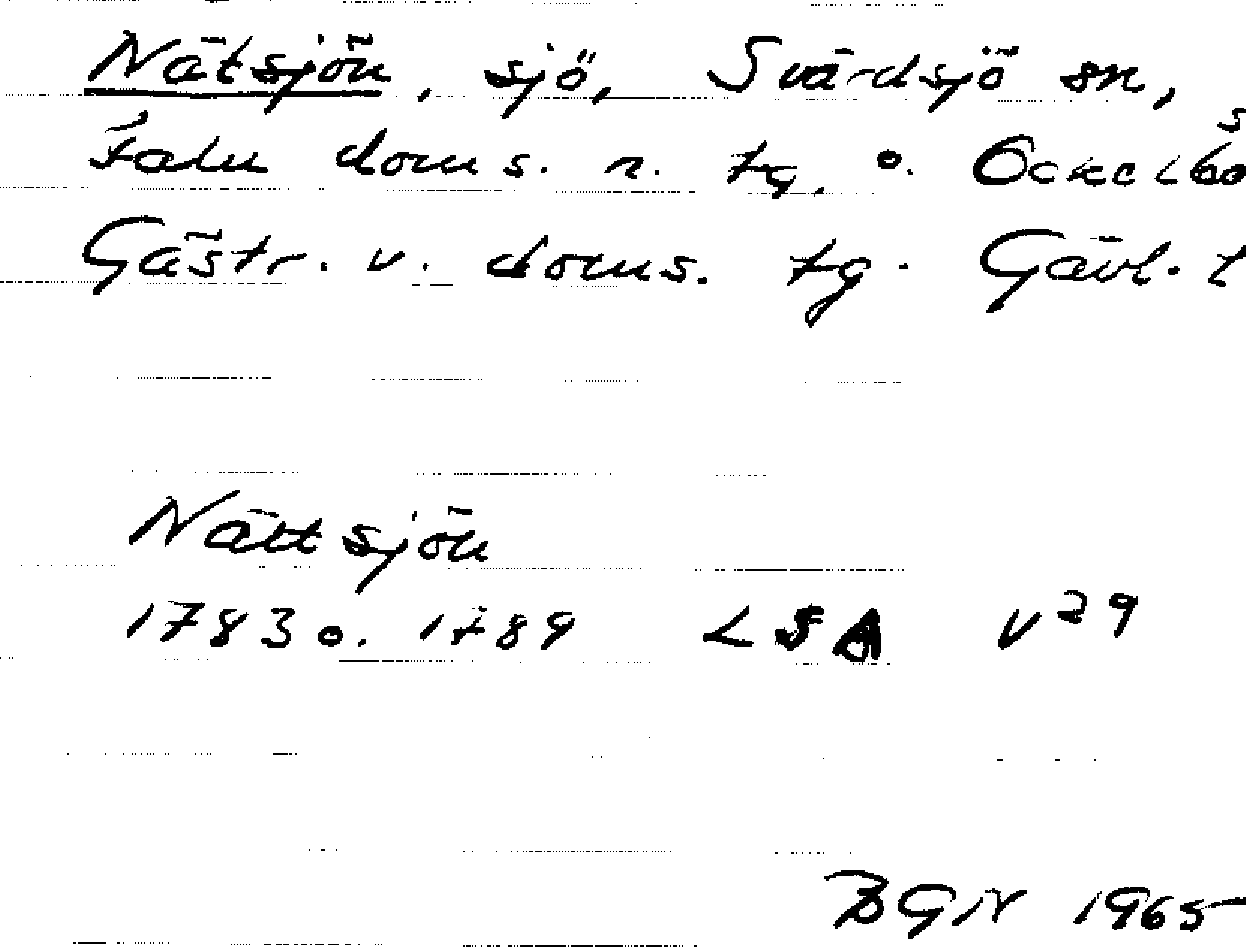 Nätsjön, sjö, Svärdsjö sn,
Falu doms. n. tg. o. Ockelbo s
Gästr. v. doms. tg. Gävl. l
Nättsjön
1783 o. 1789 LSA V29
BGN 1965